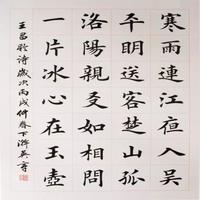 寒雨連江夜入吳
平明送客楚山孤
洛陽親友如相問
一片冰心在玉壺
王昌齡詩歲次丙戌仲春下澣